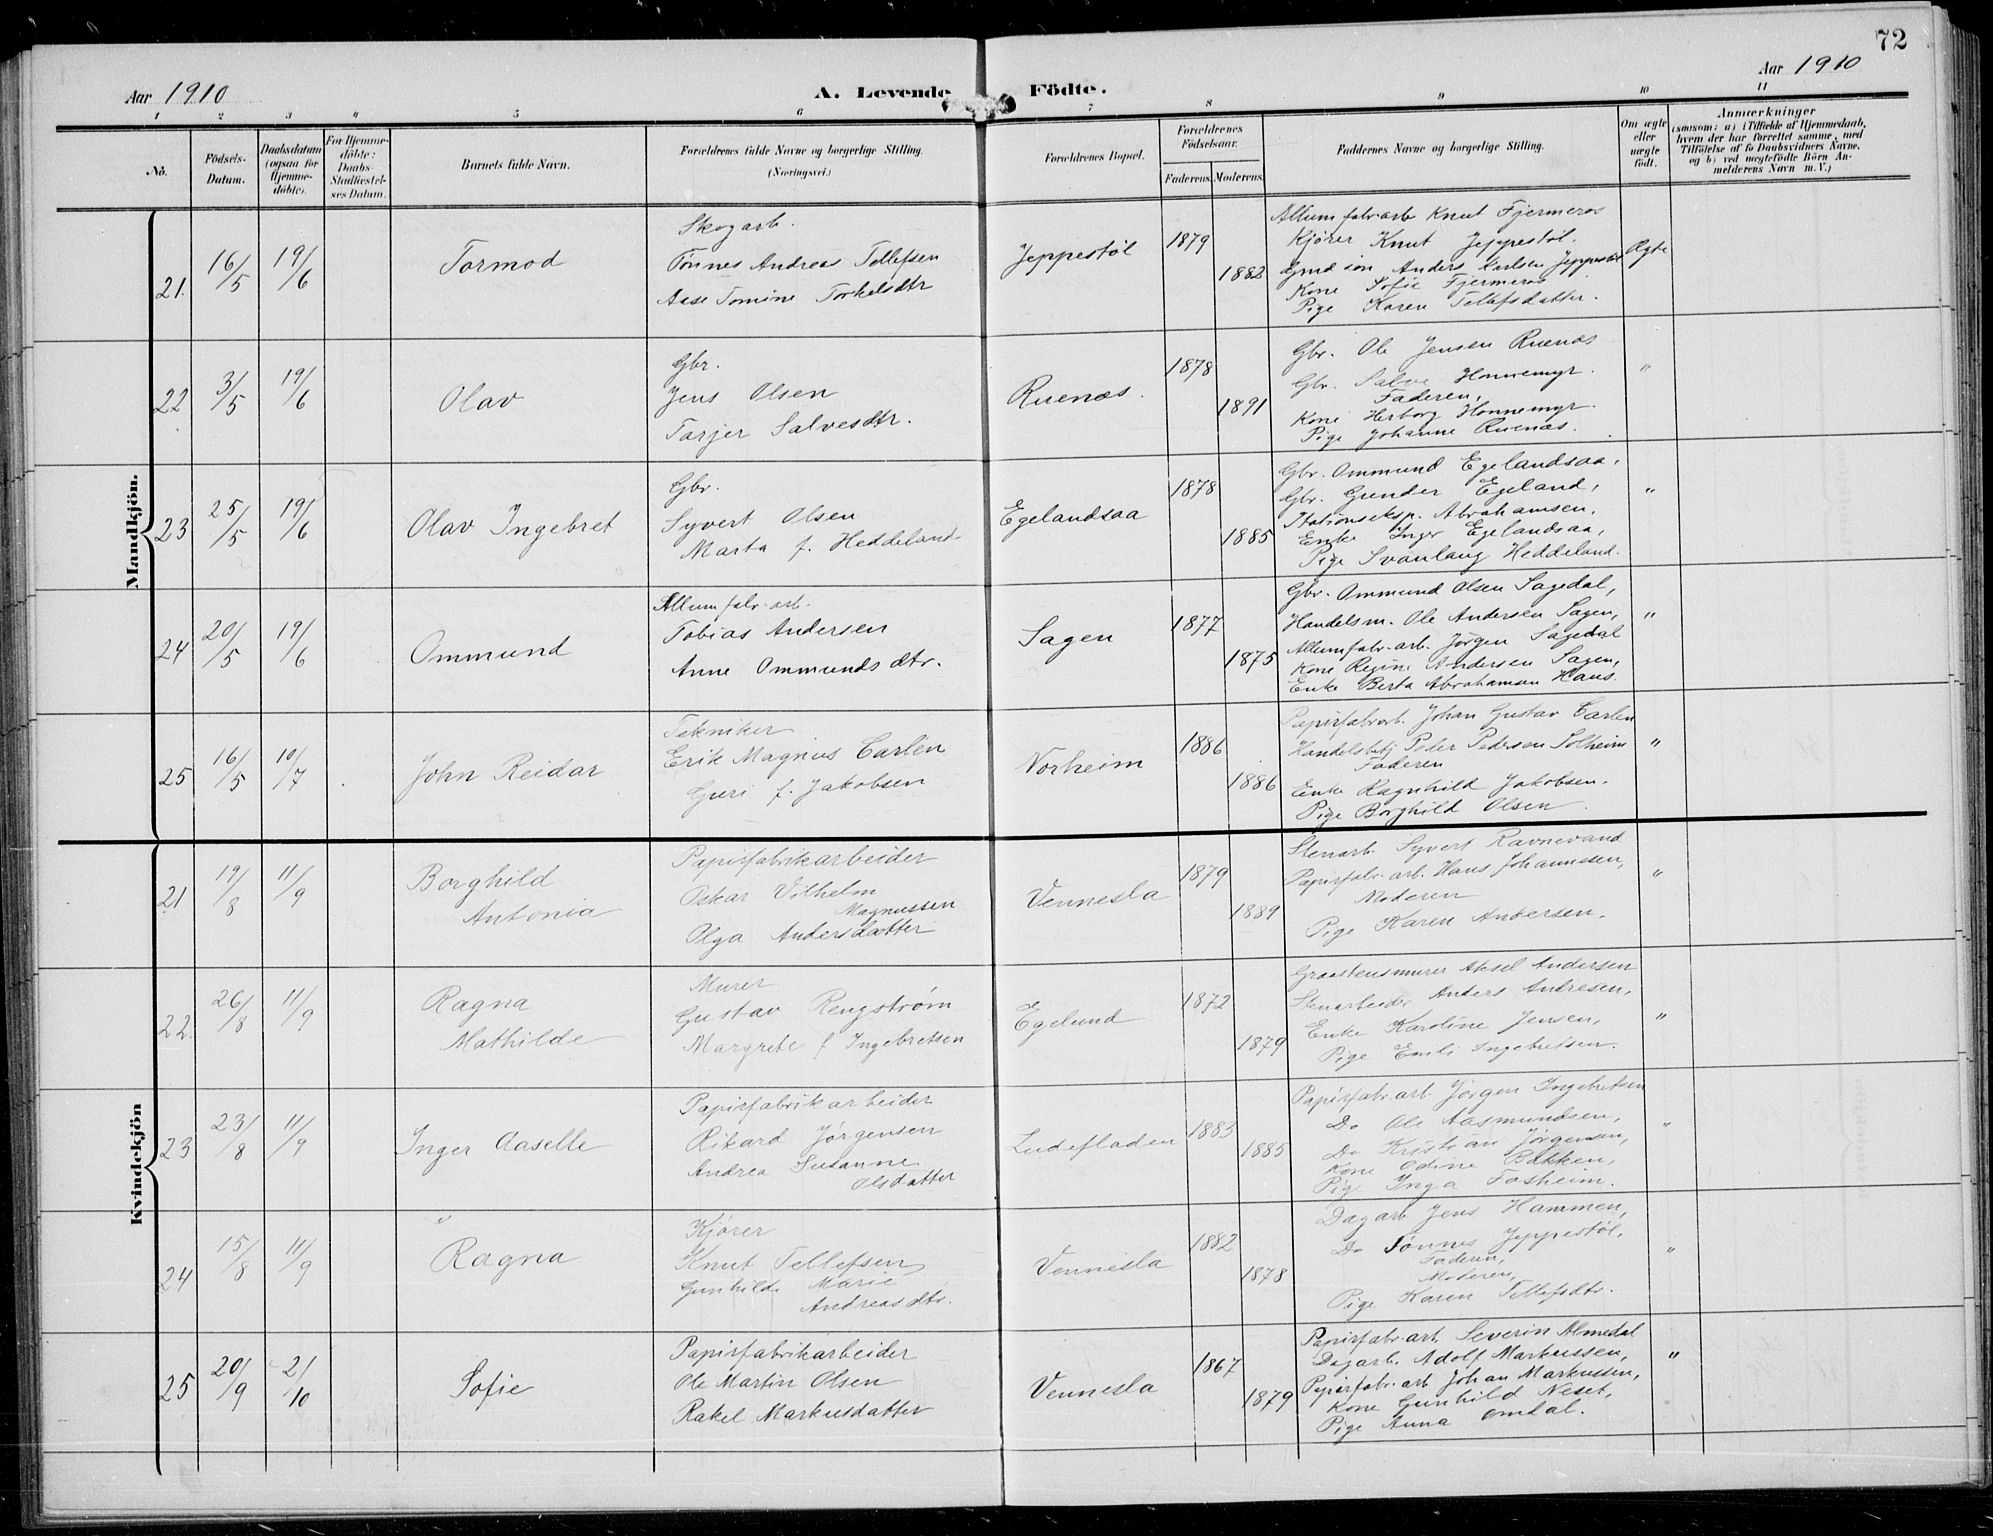 72
Aar 1910
A. Levende
Födte.
Aar 1910
1 2 3 4 5 6 7 8 9 10 11
No.
Födsels-Datum.
Daabsdatum (ogsaa for Hjemmedöbte).
For Hjemmedöbte: Daabs-Stadfæstelses Datum.
Barnets fulde Navn.
Forældrenes fulde Navne og borgerlige Stilling. (Næringsvei.)
Forældrenes Bopæl.
Forældrenes Födselsaar.
Faderens. Moderens.
Faddernes Navne og borgerlige Stilling.
Om ægte eller uægte födt.
Anmærkninger
(saasom: a) i Tilfælde af Hjemmedaab, hvem der har forrettet samme, med Tilföielse af to Daabsvidners Navne, og b) ved uægtefödte Börn Anmelderens Navn m.V.)
Mandkjön.
21. 16/5 19/6 Tormod
Skogarb.
Tønnes Andreas Tellefsen
Aase Tomine Torkelsdtr
Jeppestøl 1879 1882
Allumfabr.arb Knut Fjermeros
Kjører Knut Jeppestøl.
Gmd søn Anders Karlsen Jeppestøl
Kone Sofie Fjermeros
Pige Karen Tellefsdatter.
Ægte
22 3/5 19/6 Olav
Gbr.
Jens Olsen
Tarjer Salvesdtr.
Ruenæs. 1878 1891
Gbr. Ole Jensen Ruenæs
Gbr. Salve Honnemyr.
Faderen,
Kone Herborg Honnemyr.
Pige Johanne Ruenæs.
"
23 25/5 19/6 Olav Ingebret
Gbr.
Syvert Olsen
Marta f. Heddeland
Egelandsaa 1878 1885
Gbr. Ommund Egelandsaa,
Gbr. Gunder Egeland,
Stationseksp. Abrahamsen,
Enke Inger Egelandsaa,
Pige Svanlaug Heddeland.
"
24 20/5 19/6 Ommund
Allumfabr.arb.
Tobias Andersen
Anne Ommundsdtr.
Sagen 1877 1875
Gbr. Ommund Olsen Sagedal,
Handelsm. Ole Andersen Sagen,
Allumfabr.arb. Jørgen Sagedal
Kone Regine Andersen Sagen,
Enke Berta Abrahamsen Haus.
"
25 16/5 10/7 John Reidar
Tekniker
Erik Magnus Carlén
Guri f. Jakobsen
Norheim 1886 1886
Papirfabrarb. Johan Gustav Carlén
Handelsbetj Peder Pedersen Solheim
Faderen
Enke Ragnhild Jakobsen.
Pige Borghild Olsen.
"
Kvindekjön
21 19/8 11/9 Borghild
Antonia
Papirfabrikarbeider
Oskar Vilhelm
Magnussen
Olga Andersdatter
Vennesla 1879 1889
Stenarb. Syvert Ravnevand
Papirfabr.arb. Hans Johannesen,
Moderen
Pige Karen Andersen.
"
22. 26/8 11/9 Ragna
Mathilde
Murer
Gustav Rengstrøm
Margrete f Ingebretsen
Egelund 1872 1879
Graastensmurer Aksel Andersen
Stenarbeider Anders Andresen,
Enke Karoline Jensen,
Pige Emli Ingebretsen.
"
23 23/8 11/9 Inger Aaselle
Papirfabrikarbeider
Rikard Jørgensen
Andrea Susanne
Olsdatter
Ludefladen 1883 1885
Papirfabr.arb. Jørgen Ingebretsen
Do Ole Aasmundsen,
Do Kristian Jørgensen,
Kone Odine Bakken,
Pige Inga Fosheim.
"
24 15/8 11/9 Ragna
Kjører
Knut Tellefsen
Gunhilde Marie
Andreasdtr.
Vennesla 1882 1878
Dagarb Jens Hammen,
Do Tønnes Jeppestøl,
Faderen,
Moderen,
Pige Karen Tellefsdtr.
"
25 20/9 2/10 Sofie
Papirfabrikarbeider
Ole Martin Olsen
Rakel Markusdatter
Vennesla 1867 1879
Papirfabr.arb. Severin Almedal
Dagarb. Adolf Markussen,
Papirfabr.arb Johan Markussen,
Kone Gunhild Neset,
Pige Anna Omdal.
"